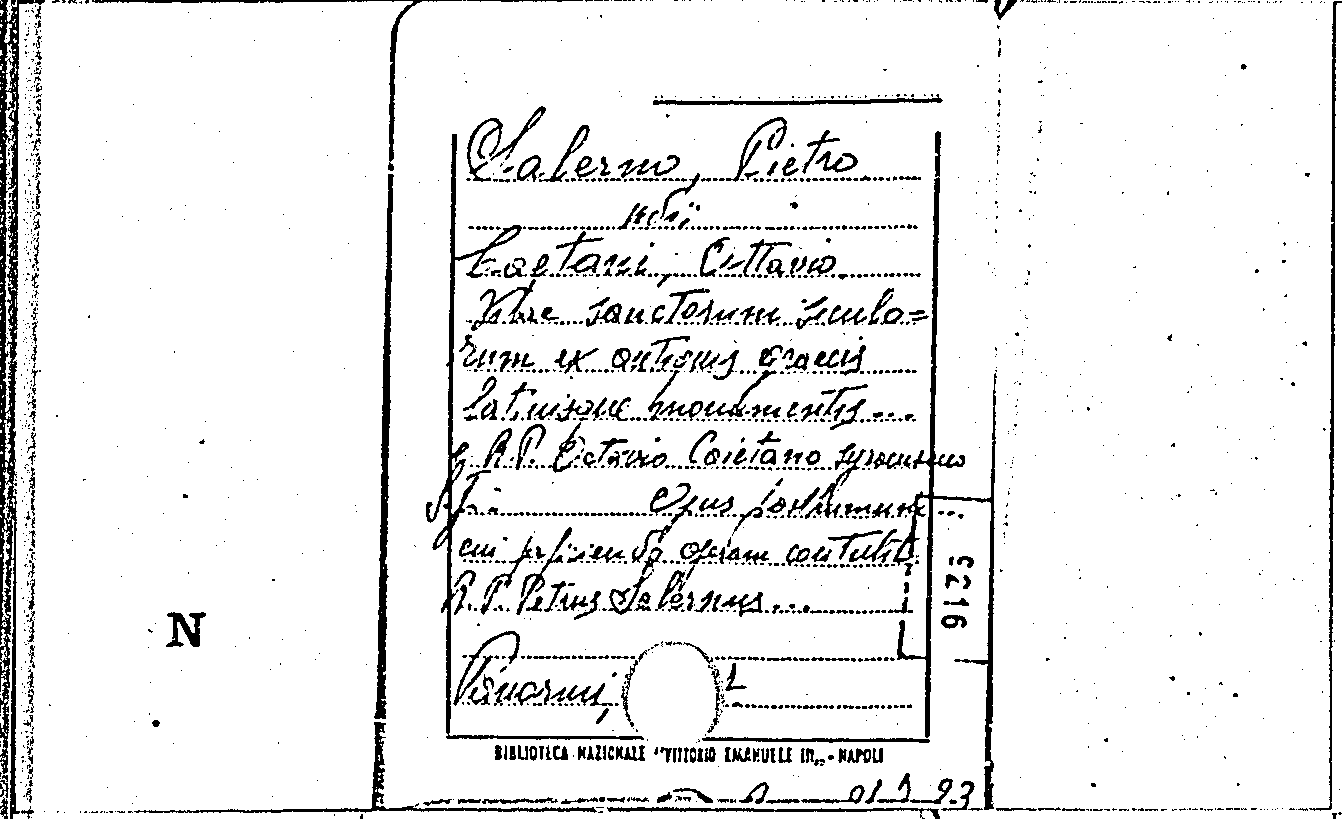 Salerno, Pietro
vedi
Caetani, Ottavio
Vitae sanctorum siculo=
rum ex antiquis graecis
latinisque monumentis...
R. P. Octavio Caietano syracusano
S. J. : Opus posthumum...
cui perficiendo operam contulit
R. P. Petrus Salernus...
Panormi,
BIBLIOTECA NAZIONALE "VITTORIO EMANUELE III„ - NAPOLI
N